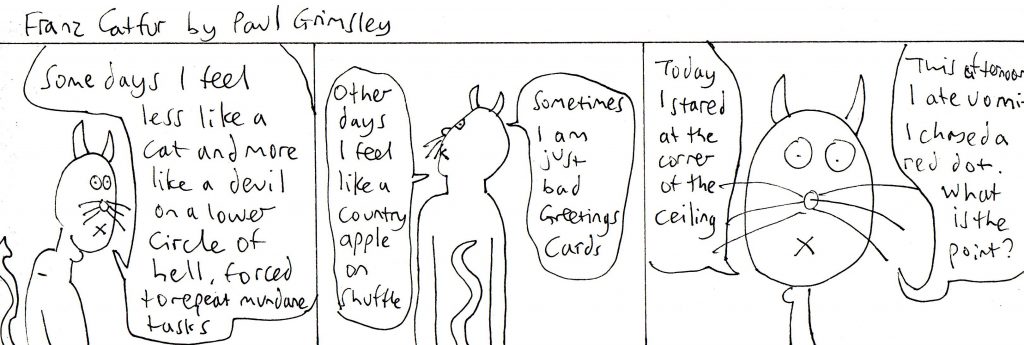 Franz Catfur by Paul Grimsley
Some days I feel
less like a
cat and more
like a devil
on a lower
circle of
hell, forced
to repeat mundane
tasks
Other
days
I feel
like a
country
apple
on
shuffle
Sometimes
I am
just
bad
Greetings
Cards
Today
I stared
at the
corner
of the
ceiling
This afternoon
I ate vomi
I chased a
red dot.
What
is the
point?